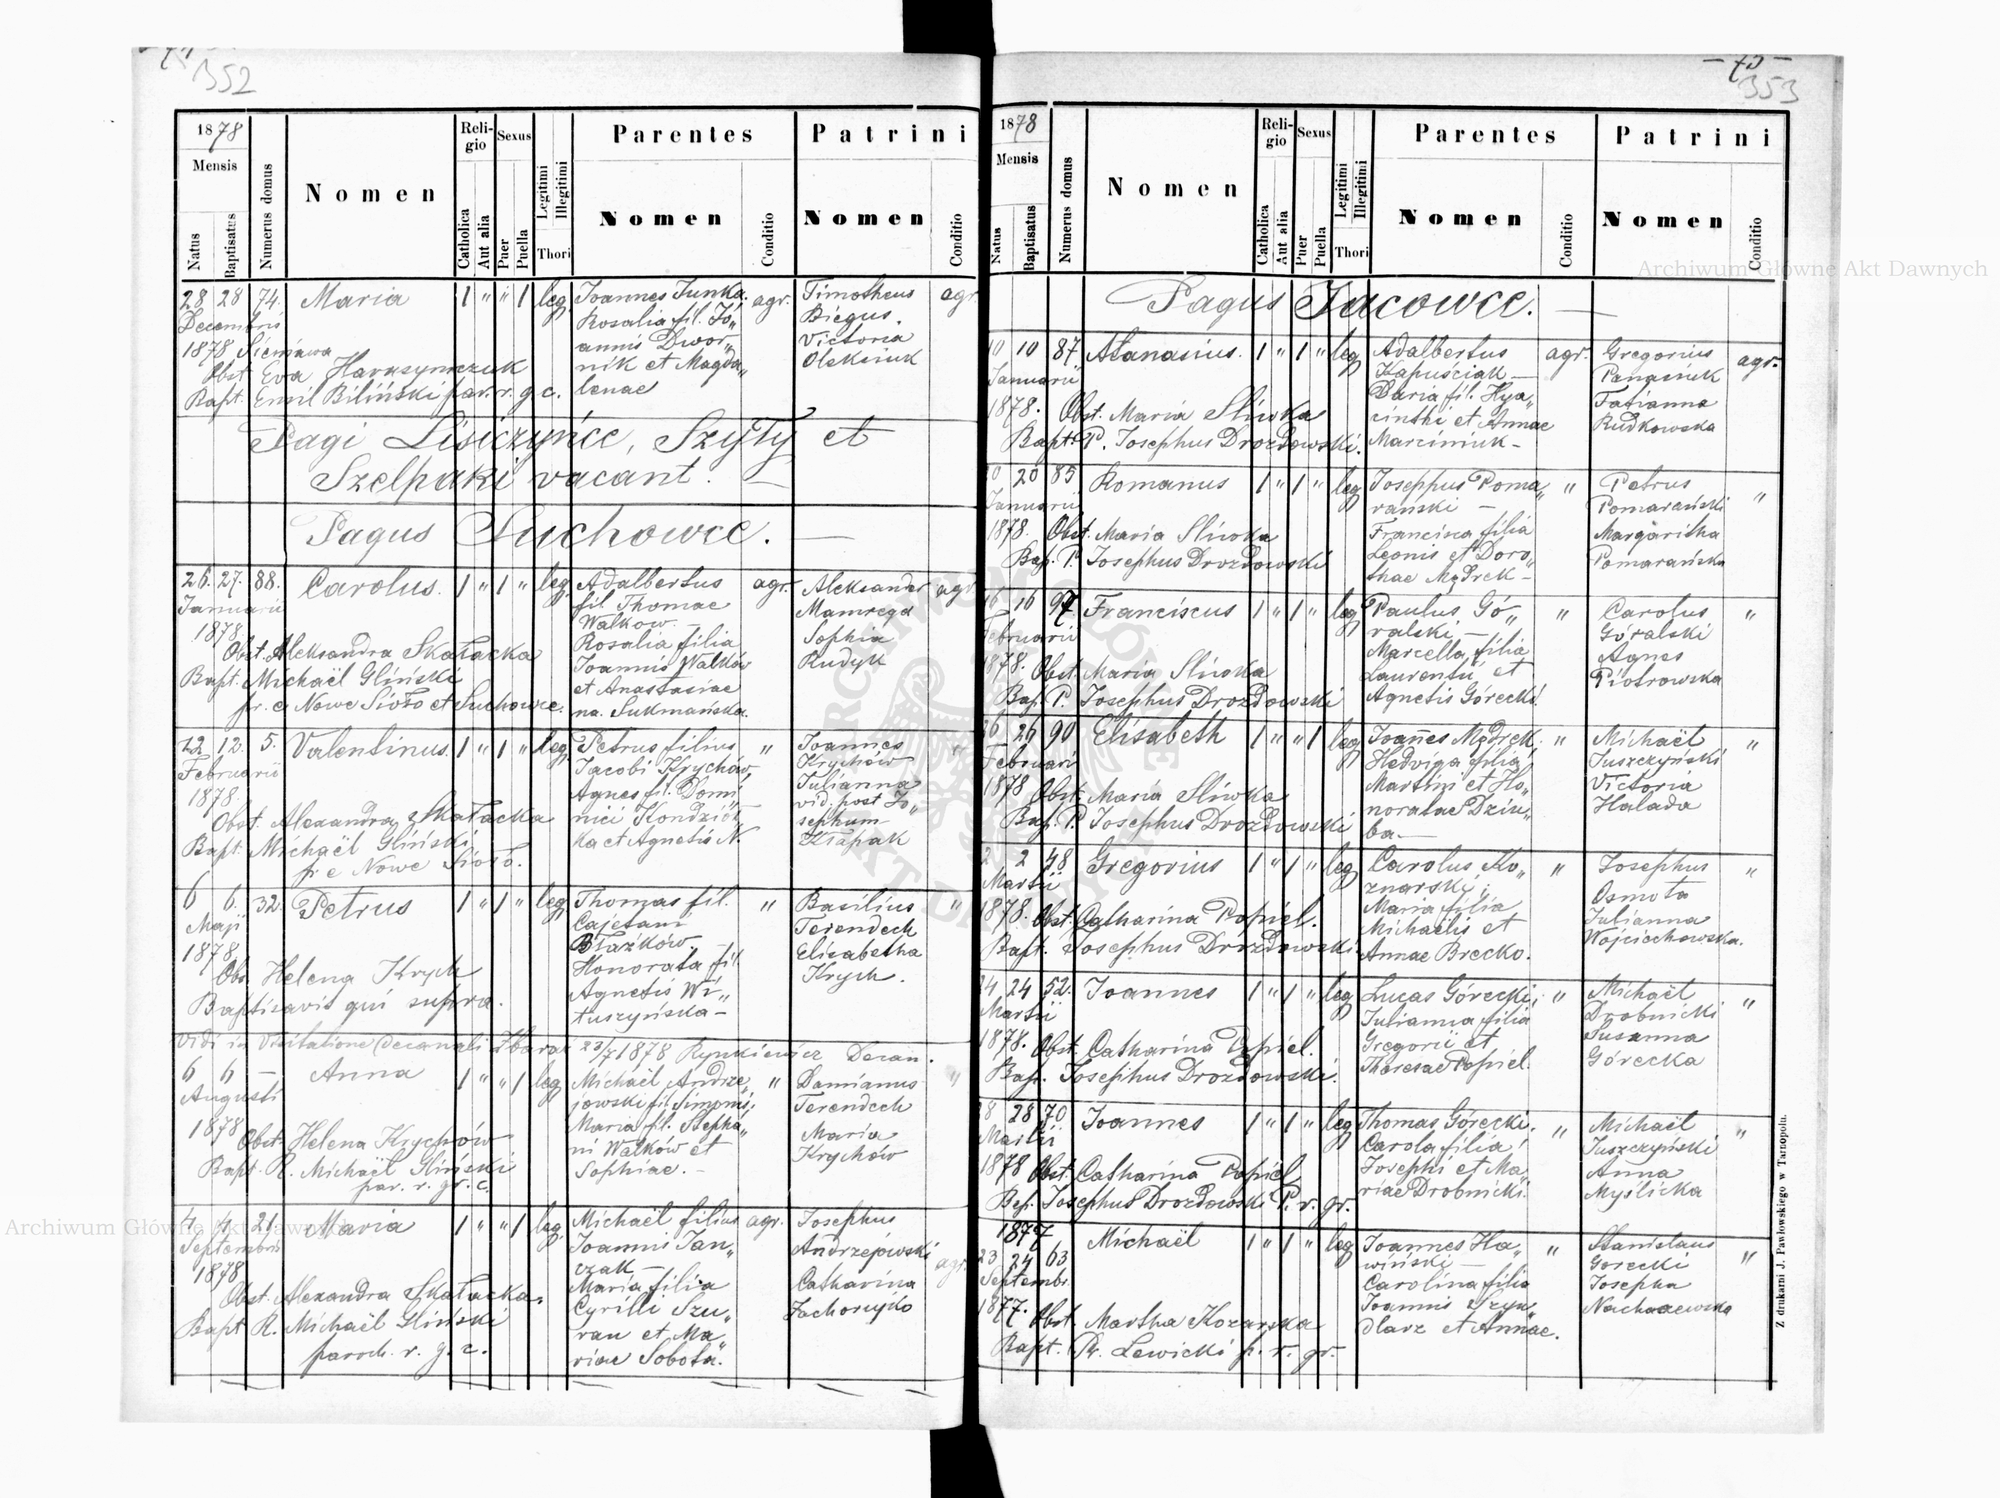 352
1878
Mensis
Natus
Baptisatus
Numerus domus
Nomen
Religio
Catholica
Aut alia
Sexus
Puer
Puella
Legitimi
Illegitimi
Thori
Parentes
Nomen
Conditio
Patrini
Nomen
Conditio
28 28 74. Maria 1 " " 1 leg. Joannes Funka. agr. Timotheus agr.
Decembris Rosalia fil. Jo„ Biegus.
1878 Sieniawa annis Dwor„ Victoria
Obst. Eva Harasymczuk nik et Magda„ Oleksiuk
Bapt. Emil Biliński par. r. g. c. lenae
Pagi Lisiczyńce, Szyły et
Szelpaki vacant. —
Pagus Suchowce. —
26. 27. 88. Carolus. 1 " 1 " leg. Adalbertus agr. Aleksander agr.
Januarii fil Thomae Mamrega
1878 Walkow. — Sophia
Obst. Aleksandra Skałacka Rosalia filia Rudyk
Bapt. Michaël Gliński Joannis Walków
pr. e Nowe Sioło et Suchowce. et Anastasiae
na. Sukmańska.
12 12. 5. Valentinus. 1 " 1 " leg. Petrus filius " Joannes "
Februarii Jacobi Krychów, Krychów
1878. Agnes fil. Domi„ Julianna
Obst. Alexandra Skałacka nici Kondziół„ vid. post Jo„
Bapt. Michaël Gliński ka et Agnetis N. sephum
pr e Nowe Sioło. Kłapak
6 6. 32. Petrus 1 " 1 " leg. Thomas fil. " Basilius "
Maji Cajetani Terendech
1878. Błażków. — Elisabetha
Obs. Helena Krych Honorata fil. Krych.
Baptisavit qui supra. Agnetis Wi„
tuszyńska —
Vidi in Visitatione Decanali Zbaraż 23/7 1878 Rynkiewicz Decan.
6 6 — Anna 1 " " 1 leg. Michaël Andrze„ " Damianus "
Augusti jowski fil. Simonis; Terendech
1878 Maria fil. Stepha„ Maria
Obst. Helena Krychów ni Walków et Krychów
Bapt. R. Michaël Gliński Sophiae. —
par. r. gr. c.
4 4 21. Maria 1 " " 1 leg. Michaël filius agr. Josephus
Septembris Joannis Jan„ Andrzejowski agr.
1878 czak — Catharina
Obst. Alexandra Skałacka. Maria filia Zachorujko
Bapt R. Michaël Gliński Cyrilli Szu„
paroch. r. g. c. ran et Ma„
riae Sobota.
353
1878
Mensis
Natus
Baptisatus
Numerus domus
Nomen
Religio
Catholica
Aut alia
Sexus
Puer
Puella
Legitimi
Illegitimi
Thori
Parentes
Nomen
Conditio
Patrini
Nomen
Conditio
Pagus Jacowce. —
10 10 87 Atanasius. 1 " 1 " leg. Adalbertus agr. Gregorius agr.
Januarii Kapuściak — Panasiuk
1878. Daria fil. Hya„ Tatianna
Obst. Maria Sliwka cinthi et Annae Rudkowska
Bapt. P. Josephus Drozdowski. Marciniuk —
20 20 85 Romanus 1 " 1 " leg. Josephus Poma„ " Petrus "
Januarii rański — Pomarański
1878. Obst. Maria Sliwka Francisca filia Margaritha
Bap. P. Josephus Drozdowski Leonis et Doro„ Pomarańska
thae Mądrek —
16 16 97 Franciscus 1 " 1 " leg. Paulus Gó„ " Carolus "
Februarii ralski, — Góralski
1878. Obst. Maria Sliwka Marcella filia Agnes
Bap. P. Josephus Drozdowski Laurentii et Piotrowska
Agnetis Górecki.
26 26 90 Elisabeth 1 " " 1 leg. Joannes Mądrek. " Michaël "
Februarii Hedviga filia Juszczyński
1878 Obst. Maria Sliwka Martini et Ho„ Victoria
Bap. P. Josephus Drozdowski noratae Dziu„ Halada
ba —
2 2 48 Gregorius 1 " 1 " leg. Carolus Ko„ " Josephus "
Martii znarski; Osmota
1878. Obst. Catharina Popiel. Maria filia Julianna
Bapt. Josephus Drozdowski. Michaëlis et Wojciechowska.
Annae Brecko.
24 24 52. Joannes 1 " 1 " leg. Lucas Górecki; " Michaël "
Martii Julianna filia Drobnicki
1878. Obst. Catharina Popiel. Gregorii et Susanna
Bap. Josephus Drozdowski. Theresae Popiel. Górecka
28 28 70 Joannes 1 " 1 " leg. Thomas Górecki. " Michaël "
Martii Carola filia Juszczyński
1878 Obst. Catharina Popiel Josephi et Ma„ Anna
Bap. Josephus Drozdowski P. r. gr. riae Drobnicki. Myślicka
1877 Michaël 1 " 1 " leg. Joannes Ha„ " Stanislaus "
23 24 63 wiński — Gorecki
Septembr. Carolina filia Josepha
1877. Obst. Martha Kozarska Joannis Szyn„
Bapt. Pr. Lewicki p. r. gr. dlarz et Annae.
Z drukarni J. Pawłowskiego w Tarnopolu.
Archiwum Główne Akt Dawnych
Archiwum Główne Akt Dawnych